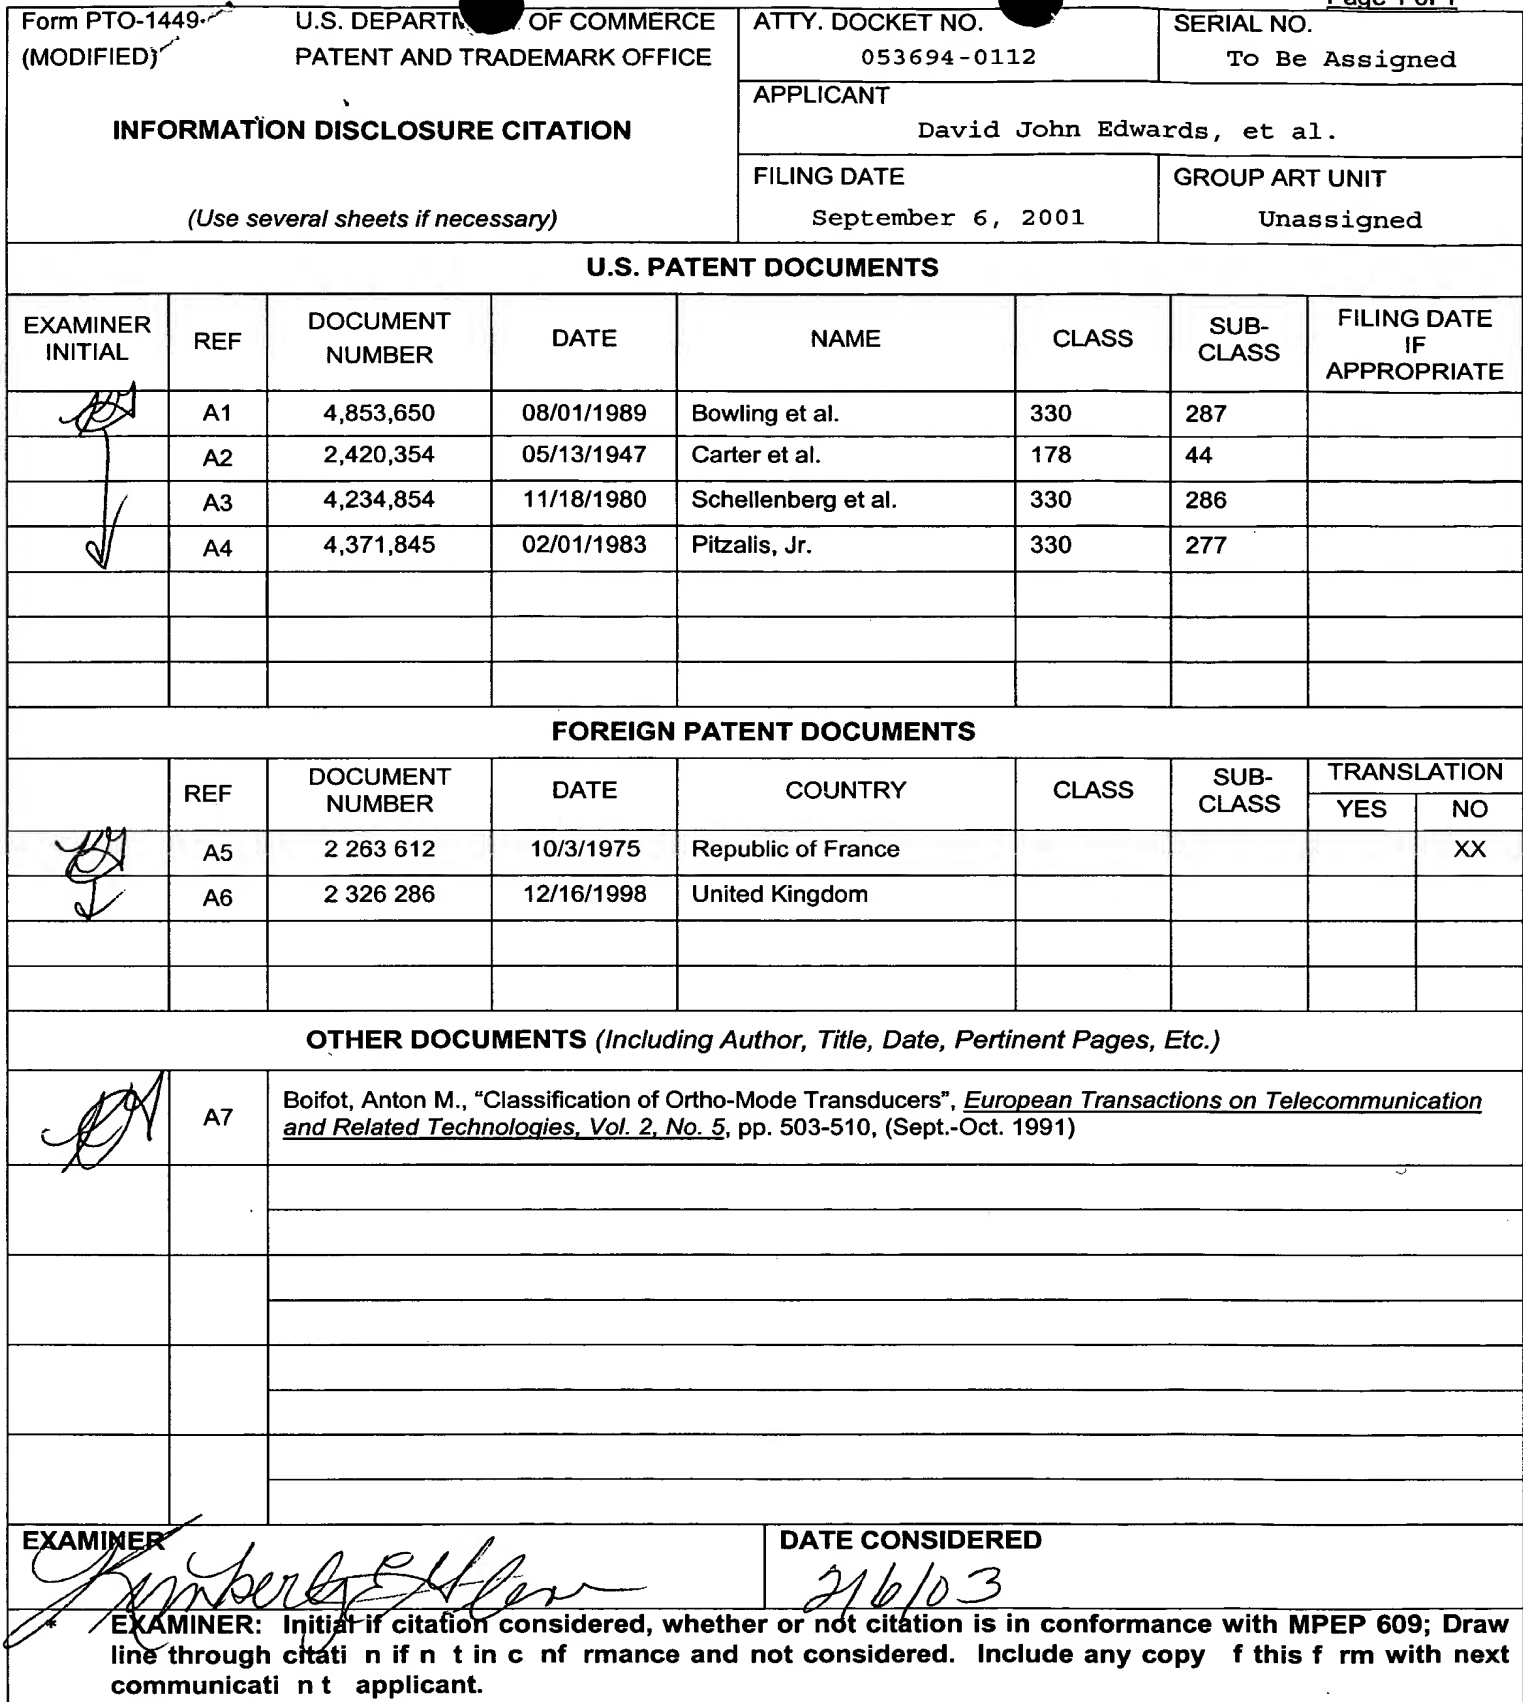 Page 1 of 1
Form PTO-1449 U.S. DEPARTM OF COMMERCE ATTY. DOCKET NO. SERIAL NO.
(MODIFIED) PATENT AND TRADEMARK OFFICE 053694-0112 To Be Assigned
APPLICANT
INFORMATION DISCLOSURE CITATION David John Edwards, et al.
FILING DATE GROUP ART UNIT
(Use several sheets if necessary) September 6, 2001 Unassigned
U.S. PATENT DOCUMENTS
EXAMINER INITIAL REF DOCUMENT NUMBER DATE NAME CLASS SUB-CLASS FILING DATE IF APPROPRIATE
A1 4,853,650 08/01/1989 Bowling et al. 330 287
A2 2,420,354 05/13/1947 Carter et al. 178 44
A3 4,234,854 11/18/1980 Schellenberg et al. 330 286
A4 4,371,845 02/01/1983 Pitzalis, Jr. 330 277
FOREIGN PATENT DOCUMENTS
REF DOCUMENT NUMBER DATE COUNTRY CLASS SUB-CLASS TRANSLATION
YES NO
A5 2 263 612 10/3/1975 Republic of France XX
A6 2 326 286 12/16/1998 United Kingdom
OTHER DOCUMENTS (Including Author, Title, Date, Pertinent Pages, Etc.)
A7 Boifot, Anton M., “Classification of Ortho-Mode Transducers”, European Transactions on Telecommunication
and Related Technologies, Vol. 2, No. 5, pp. 503-510, (Sept.-Oct. 1991)
EXAMINER DATE CONSIDERED
Kimberly E Glenn 2/6/03
* EXAMINER: Initial if citation considered, whether or not citation is in conformance with MPEP 609; Draw
line through citati n if n t in c nf rmance and not considered. Include any copy f this f rm with next
communicati n t applicant.